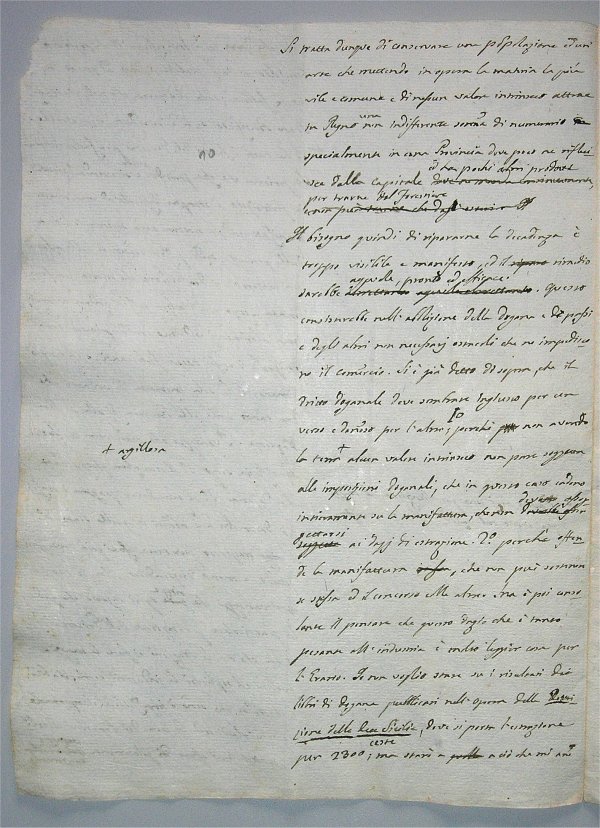 Si tratta dunque di conservare una popolazione ed un'
arte che mettendo in opera la materia la più
vile e comune e di nessun valore intrinseco attrae
in Regno una non indifferente somma di numerario
specialmente in una Provincia dove poco ne
dalla Capitale ed ha pochi altri prodotti
per trarne dal forestiere
Il bisogno quindi di ripararne la decadenza è
troppo visibile e manifesto, ed il rimedio
sarebbe agevole, pronto ed efficace. Questo
consisterebbe nell'abolizione della dogana e de' passi
e degli altri non necessarj ostacoli che ne impedisco
no il comercio. Si è già detto di sopra, che il
dritto doganale deve sembrare ingiusto per un
verso e dannoso per l'altro; 1o perchè non avendo
la terra + alcun valore intrinseco non pare soggetta
+ argillosa
alle imposizioni doganali, che in questo caso cadono
interamente su la manifattura, che non dovrebbe assog
gettarsi ai dazj di estrazione. 2o perchè offen
de la manifattura, che non può sostenere
se stessa ed il concorso colle altre. Ma è poi conso
lante il pensare che questo dazio che è tanto
pesante all'industria è molto leggier cosa per
l'Erario. Io non voglio stare su i risultati dei
libri di dogana pubblicati nell'opera della Descri
zione delle Due Sicilie, dove si porta l'estrazione
per 2300 ceste; ma starò a ciò che mi an
10